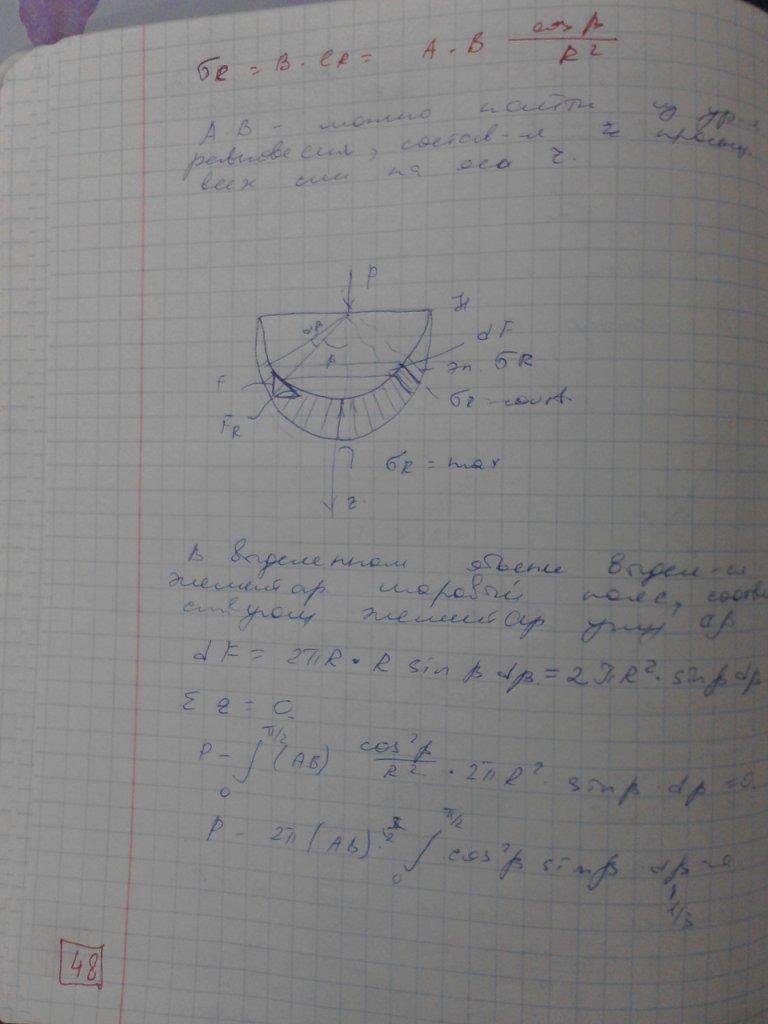 σR = B · eR = A · B cos β / R²
A·B - можно найти из ур-я
равновесия, состав-я Σ проекц.
всех сил на ось z.
P
dβ
β
dF
эп. σR
σR = const
F
FR
σR = max
z
В выделенном объеме выдел-ся
элементар шаровый пояс, соотве
ствующ элементар углу dβ
dF = 2πR · R sin β dβ = 2πR² · sin β dβ
Σ z = 0.
P - ∫₀^π/2 (AB) cos²β / R² · 2πR² · sin β dβ = 0.
P - 2π (AB) · ∫₀^π/2 cos²β sin β dβ =
1/3
48